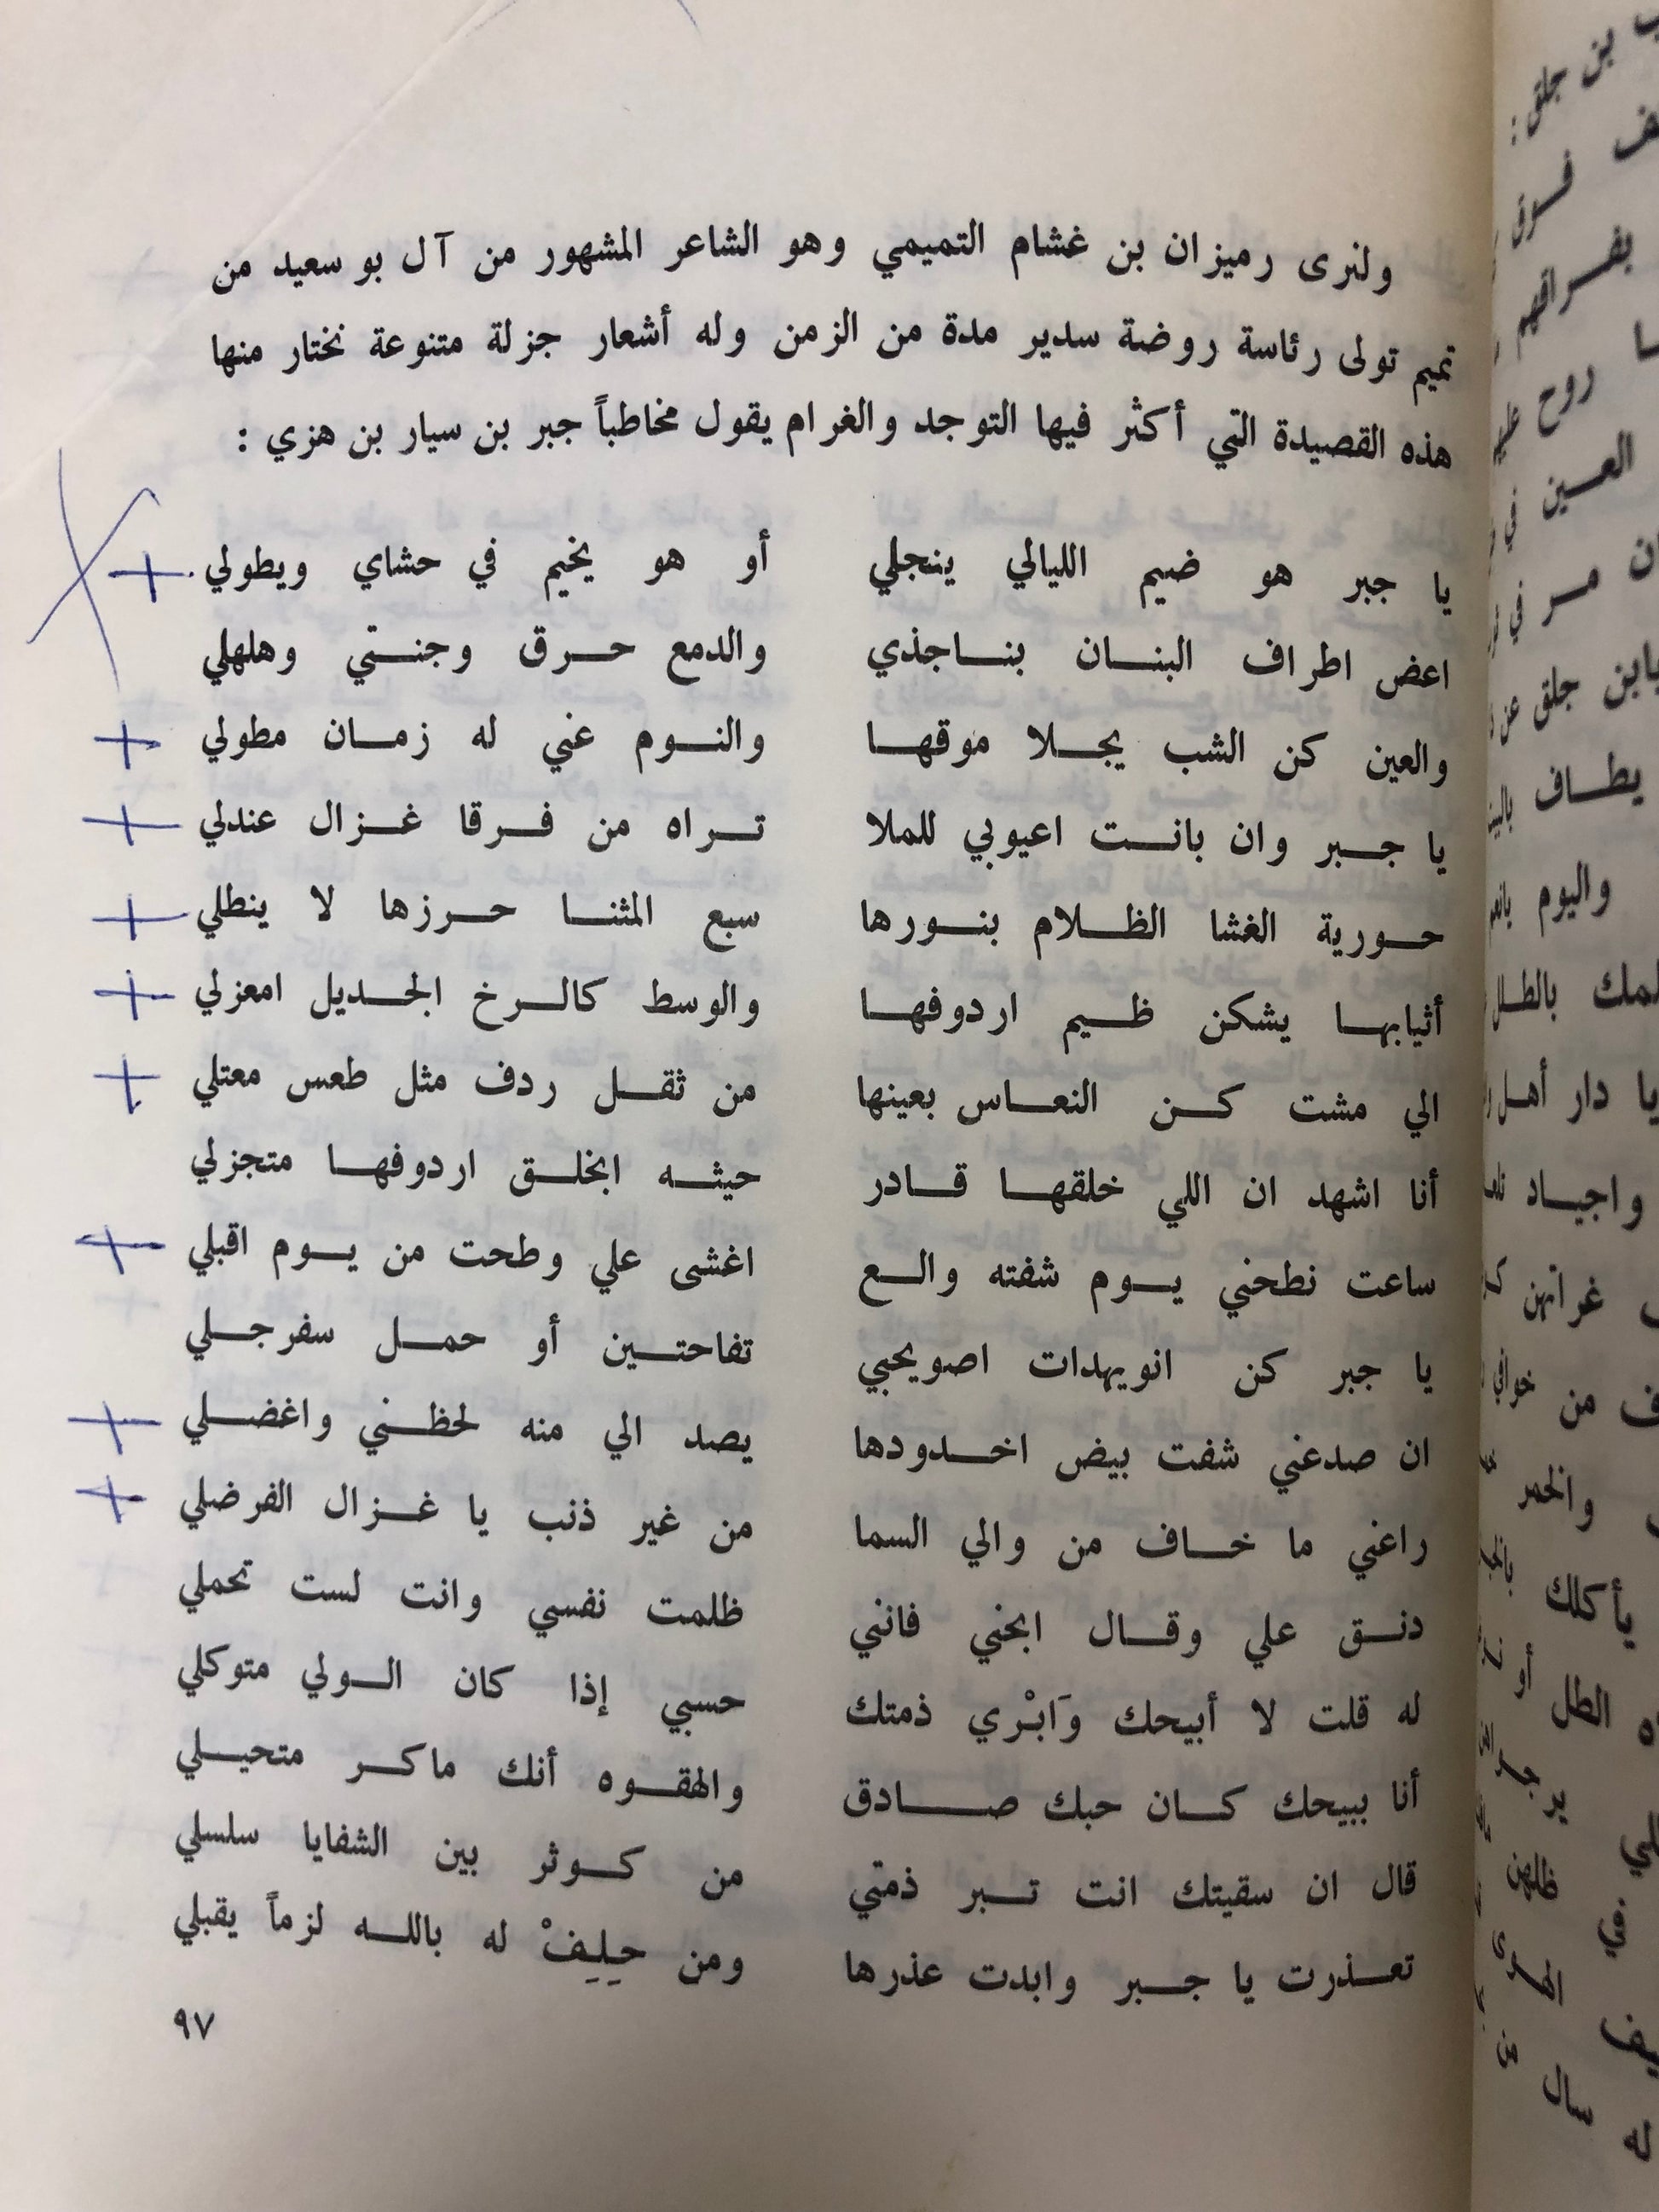 ولنرى رميزان بن غشام التميمي وهو الشاعر المشهور من آل بو سعيد من
تميم تولى رئاسة روضة سدير مدة من الزمن وله أشعار جزلة متنوعة نختار منها
هذه القصيدة التي أكثر فيها التوجد والغرام يقول مخاطباً جبر بن سيار بن هزي :
يا جبر هو ضيم الليالي ينجلي أو هو يخيم في حشاي ويطولي
اعض اطراف البنان بناجذي والدمع حرق وجنتي وهلهلي
والعين كن الشب يجلا موقها والنوم عني له زمان مطولي
يا جبر وان بانت اعيوبي للملا تراه من فرقا غزال عندلي
حورية الغشا الظلام بنورها سبع المثنا حرزها لا ينطلي
أثيابها يشكن ظيم اردوفها والوسط كالرخ الجديل امعزلي
الي مشت كن النعاس بعينها من ثقل ردف مثل طعس معتلي
أنا اشهد ان اللي خلقها قادر حيثه ابخلق اردوفها متجزلي
ساعت نطحني يوم شفته والع اغشى علي وطحت من يوم اقبلي
يا جبر كن انويهدات اصويحبي تفاحتين أو حمل سفرجلي
ان صدعني شفت بيض اخدودها يصد الي منه لحظني واغضلي
راغني ما خاف من والي السما من غير ذنب يا غزال الفرضلي
دنق علي وقال ابخني فانني ظلمت نفسي وانت لست تحملي
له قلت لا أبيحك وَابْري ذمتك حسبي إذا كان الولي متوكلي
أنا ببيحك كان حبك صادق والهقوه أنك ماكر متحيلي
قال ان سقيتك انت تبر ذمتي من كوثر بين الشفايا سلسلي
تعذرت يا جبر وابدت عذرها ومن حِلِفْ له بالله لزماً يقبلي
٩٧